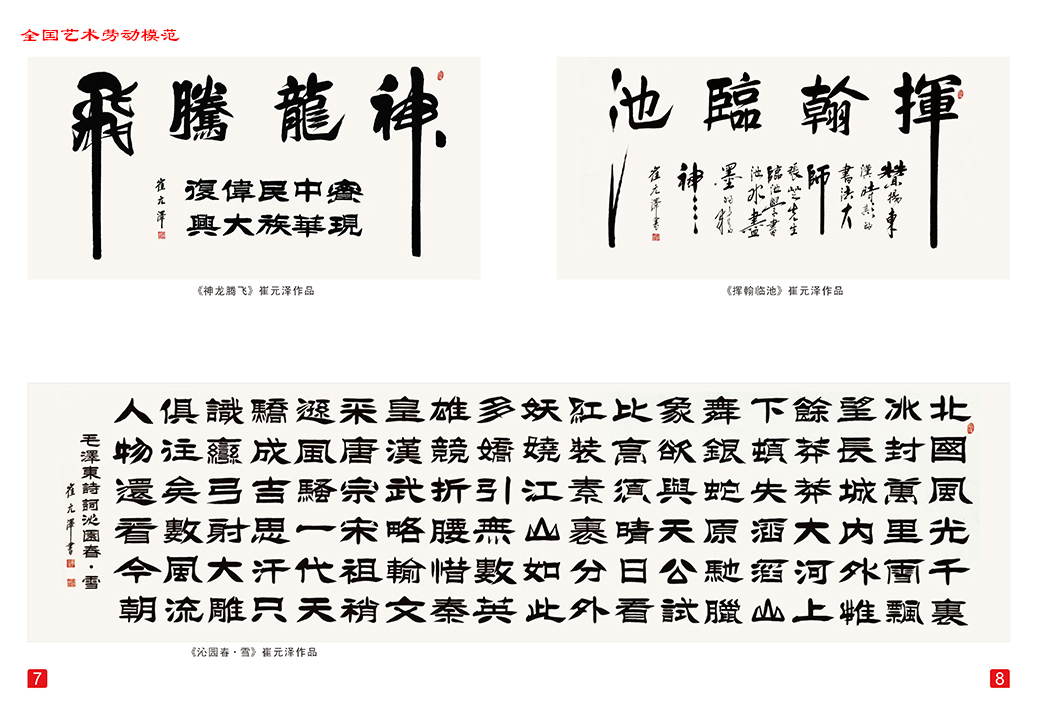 全国艺术劳动模范
神龍騰飛
實現
中華
民族
偉大
復興
崔元澤
《神龙腾飞》崔元泽作品
揮翰臨池
揚東
漢時期的
書法大
師
張芝先生
臨池學書
池水盡
墨的精
神
崔元澤書
《挥翰临池》崔元泽作品
北國風光千裏
冰封萬里雪飄
望長城內外惟
餘莽莽大河上
下頓失滔滔山
舞銀蛇原馳臘
象欲與天公試
比高須晴日看
紅裝素裹分外
妖嬈江山如此
多嬌引無數英
雄競折腰惜秦
皇漢武略輸文
采唐宗宋祖稍
遜風騷一代天
驕成吉思汗只
識彎弓射大雕
俱往矣數風流
人物還看今朝
毛澤東詩詞沁園春·雪
崔元澤書
《沁园春·雪》崔元泽作品
7
8